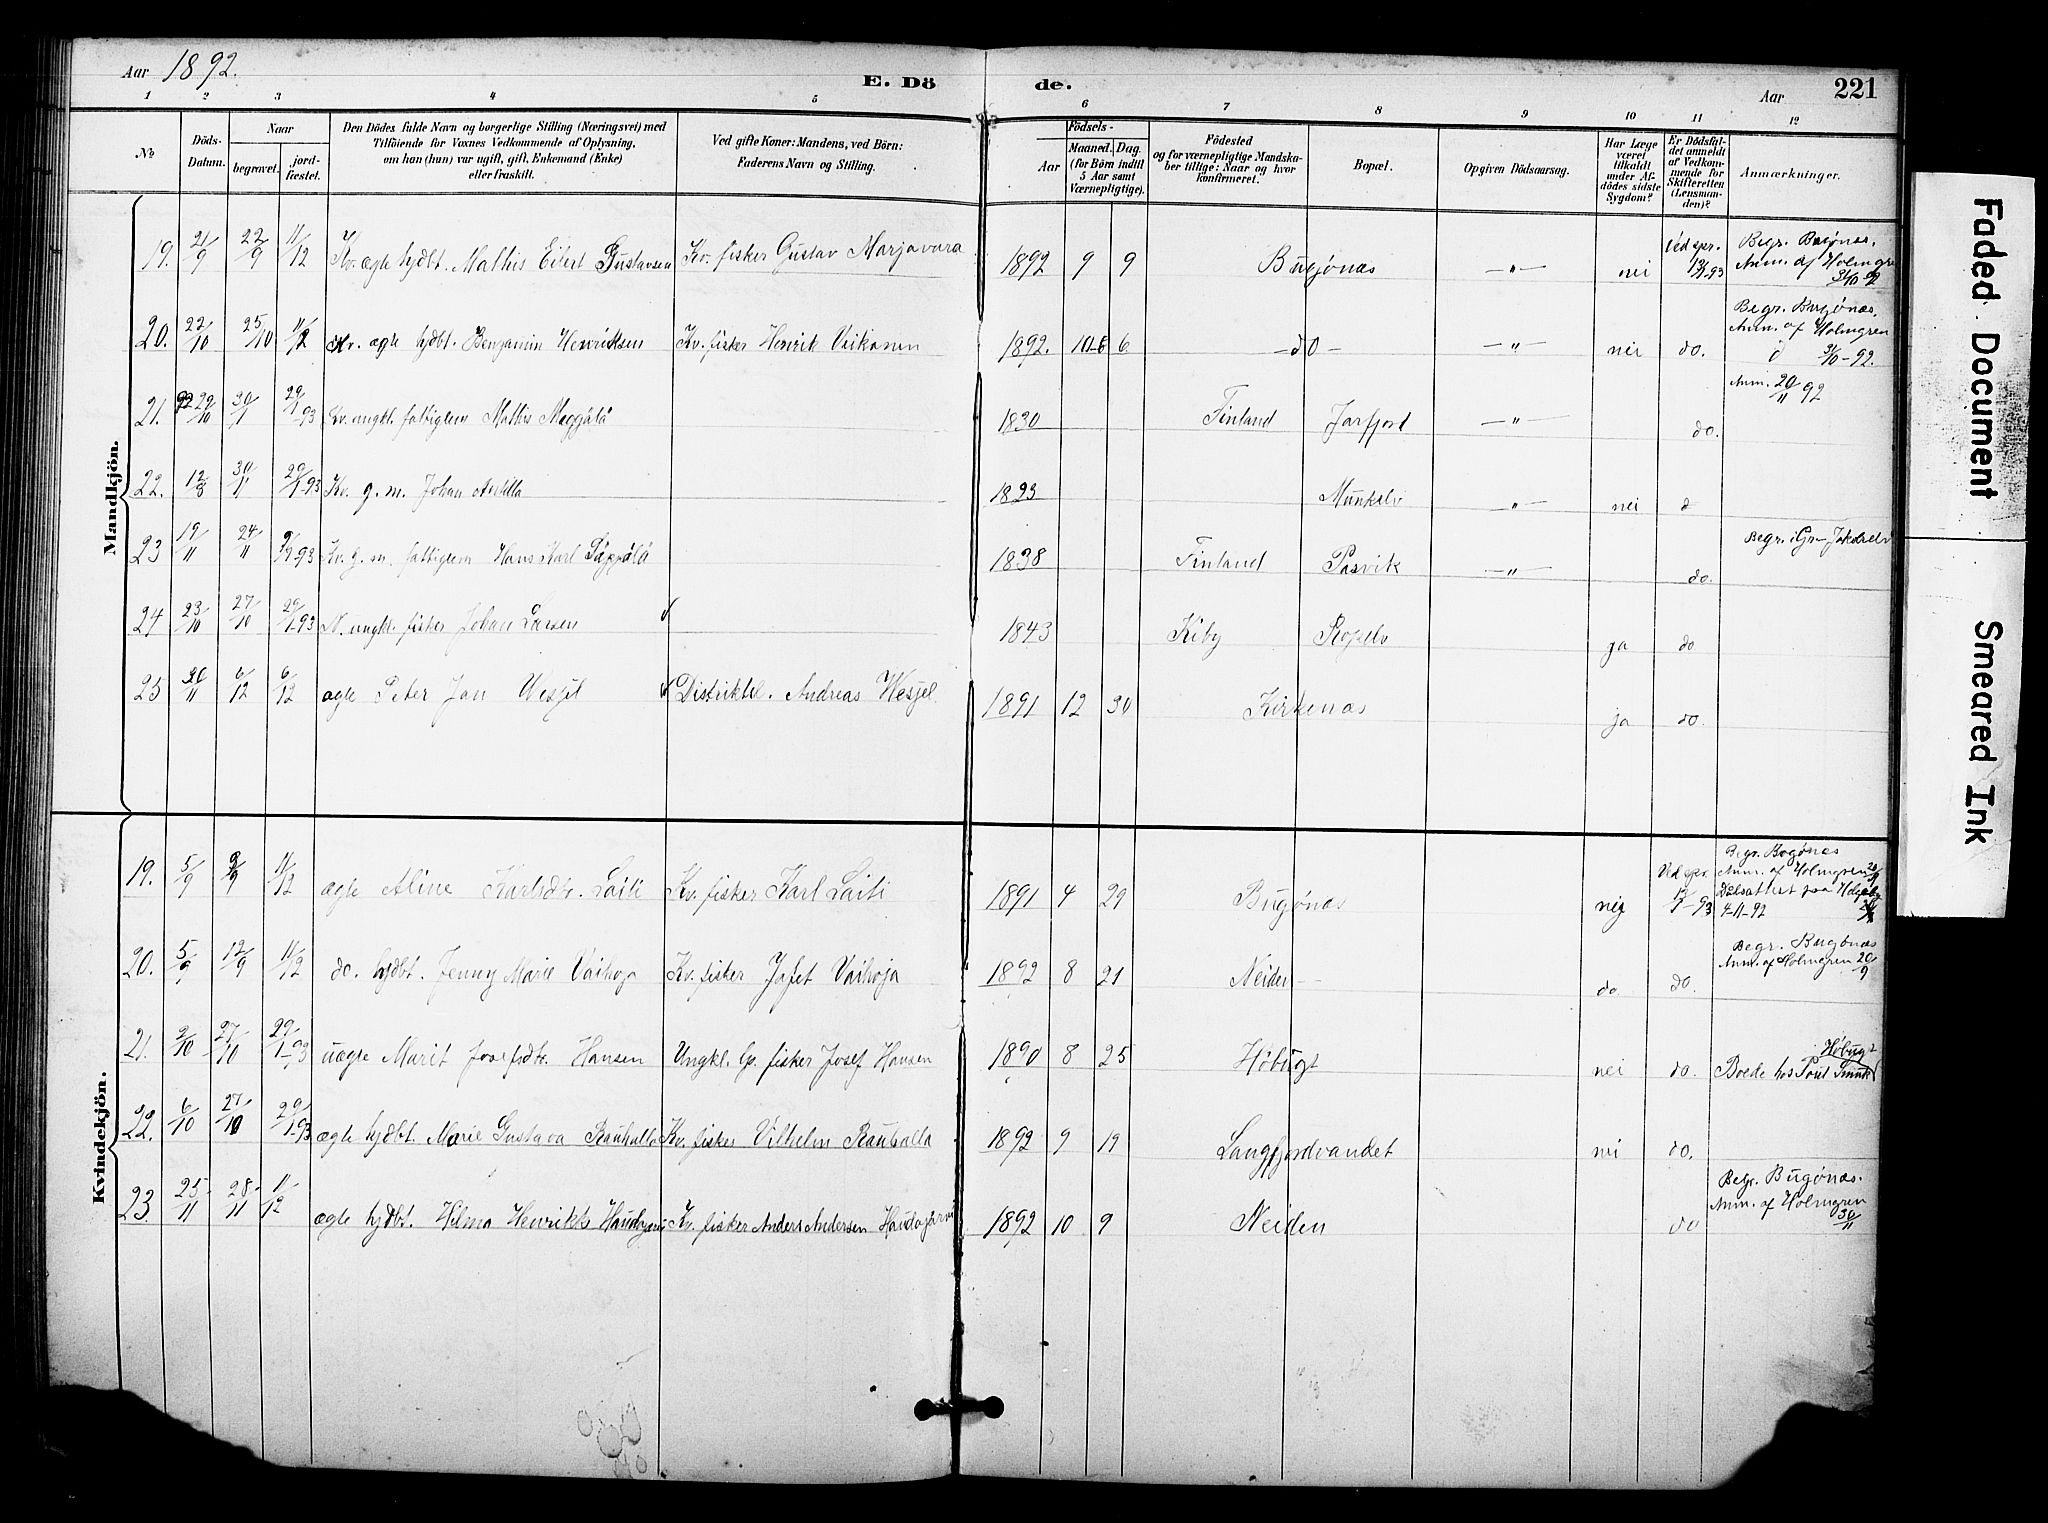 Aar 1892.
E. Döde.
Aar
221
1 2 3 4 5 6 7 8 9 10 11 12
No
Döds-Datum.
Naar
begravet.
jord-fæstet.
Den Dödes fulde Navn og borgerlige Stilling (Næringsvei) med
Tilföiende for Voxnes Vedkommende af Oplysning,
om han (hun) var ugift, gift, Enkemand (Enke)
eller fraskilt.
Ved gifte Koner: Mandens, ved Börn:
Faderens Navn og Stilling.
Födsels-
Aar
Maaned. Dag.
(for Börn indtil
5 Aar samt
Værnepligtige).
Födested
og for værnepligtige Mandska-
ber tillige: Naar og hvor
konfirmeret.
Bopæl.
Opgiven Dödsaarsag.
Har Læge
været
tilkaldt
under Af-
dödes sidste
Sygdom?
Er Dödsfal-
det anmeldt
af Vedkom-
mende for
Skifteretten
(Lensman-
den)?
Anmærkninger.
Mandkjön.
19. 21/9 22/9 11/12 Kv. ægte hjdbt. Mathis Edvert Gustavsen Kv. fisker Gustav Marjavara 1892 9 9 Bugönæs —"— nei Ved spr. Begr. Bugönæs, Anm. af Holmgren
20. 22/10 25/10 11/12 Kv. ægte hjdbt. Benjamin Henriksen Kv. fisker Henrik Vaikanen 1892. 10 6 —do— —"— nei do. Begr. Bugönæs, Anm. af Holmgren 31/10-92.
21. 22/10 30/1 29/1-93 Kv. ungkl. fattiglem Mathis 1830 Finland Jarfjord —"— do. Anm. 20/11 92
22. 12/8 30/11 29/1-93 Kv. g. m. Johan Munkelv —"— nei d
23 19/11 24/11 Kv. g. m. fattiglem Hans Karl 1838 Finland Pasvik —"— do. Begr. i Gr-Jakobselv
24 23/10 27/10 29/1-93 N. ungkl. fisker Johan Larsen 1843 Kiby ja do
25 30/11 6/12 6/12 ægte Peter Jan Wesjel Distriktsl. Andreas Wesjel. 1891 12 30 Kirkenæs ja do.
Kvindekjön.
19. 5/9 9/9 11/12 ægte Aline Karlsdtr. Laiti Kv. fisker Karl Laiti 1891 4 29 Bugönæs nei Ved spr. Begr. Bugönæs Anm. af Holmgren 20/9 4-11-92
20. 5/9 12/9 11/12 do. hjdbt. Jenny Marie Vaihoja Kv. fisker Jafet Vaihoja 1892 8 21 Neiden do do. Begr. Bugönæs Anm. af Holmgren 20/9
21. 2/10 27/10 29/1-93 uægte Marit Josefsdtr. Hansen Ungkl. fisker Josef Hansen 1890 8 25 Höbugt nei do. Boede hos Poul Höbugt
22. 6/10 27/10 29/1-93 ægte hjdbt. Marie Gustava Rauhalla Kv. fisker Vilhelm Rauhalla 1892 9 19 Langfjordvandet nei do.
23. 25/11 28/11 11/12 ægte hjdbt. Hilma Henrikke Kv. fisker Anders Andersen Haudajärvi 1892 10 9 Neiden do Begr. Bugönæs. Anm. af Holmgren 30/11
Faded Document
Smeared Ink